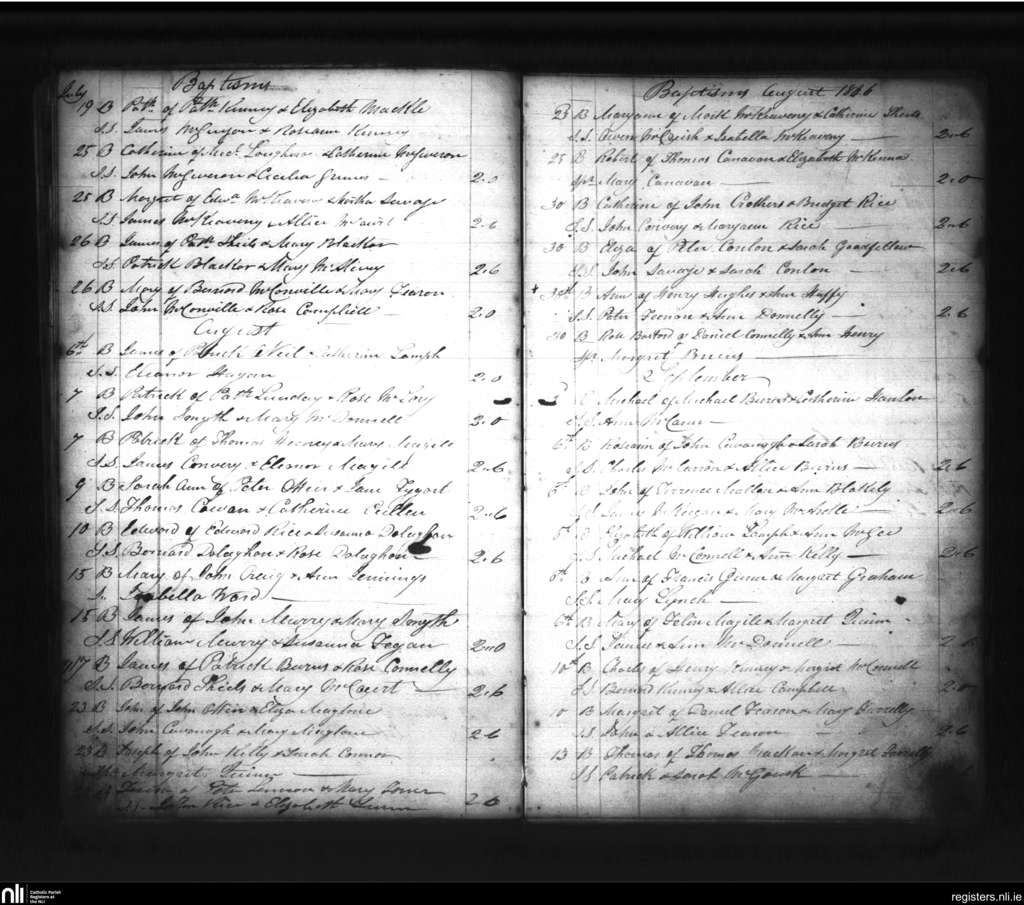 July
Baptisms
19 B Patk. of Patk. Kinney & Elizabeth Mackle
S.S. James McGuigan & Roseann Kinney
25 B Catherine of Michl. Loughran & Catherine McGiveron
S.S. John McGiveron & Cecilia Grimes 2.0
25 B Margret of Edwd. McKeaveny & Savage
S.S. James McKeaveny Allice McCourt 2.6
26 B James of Patk. Shiels & Mary Blacker
S.S. Patrick Blacker & Mary 2.6
26 B Mary of Bernard McConville & Mary Fearon
S.S. John McConville & Rose Campbell 2.0
August
6th B of Patrick O'Neil & Catherine Lamph
S.S. Eleanor Hagan 2.0
7 B Patrick of Patk. Lundey & Rose McCory
S.S. John Smyth & Mary McDonnell 2.0
7 B Patrick of Thomas & Mary Magill
S.S. James Convery & Eleanor Magill 2.6
9 B Sarah Ann of Peter & Jane
S.S. Thomas Cowan & Catherine Cullen 2.6
10 B Edward of Edward Rice & Susanna Dolaghan
S.S. Bernard Dolaghan & Rose Dolaghan 2.6
15 B Mary of John Craig & Ann Jennings
S. Isabella Ward
15 B James of John Murry & Mary Smyth
S.S. William Murry & Susanna Fegan 2.0
17 B James of Patrick Burns & Rose Connelly
S.S. Bernard Shiels & Mary McCourt 2.6
23 B John of John & Eliza
S.S. John Cavanagh & Mary 2.6
23 B Joseph of John Kelly & Sarah Connor
Margret
B of Lennon & Mary
S.S. John Rice & Elizabeth 2.6
Baptisms August 1846
23 B Maryanne of McKeaveny & Catherine
S.S. Owen & Isabella McKeaveny 2.6
25 B Robert of Thomas Canavan & Elizabeth McKenna
Spr. Mary Canavan 2.0
30 B Catherine of John Crothers & Bridget Rice
S.S. John Convery & Maryann Rice 2.6
30 B Eliza of Peter Conlon & Sarah Goodfellow
S.S. John Savage & Sarah Conlon 2.6
+ 30th B Ann of Henry Hughes & Ann Haffy
S.S. Peter Feenan & Ann Donnelly 2.6
B Rose Bastard of Daniel Connelly & Ann Henry
Spr. Margret Burns
September
Michael of Michael Burns & Catherine Hanlon
Ann McCann
6th B Roseann of John Cavanagh & Sarah Burns
S.S. Charles & Allice Burns 2.6
John of Terrence & Ann Blakely
James & Mary 2.6
6th B Elizabeth of William Lamph & Ann McGee
S.S. Michael McConnell & Ann Kelly 2.6
6th B Ann of Francis Quinn & Margret Graham
Mary Lynch
6th B Mary of Felix Magill & Margret Quinn
S.S. James & Ann McDonnell 2.6
10th B Charles of Henry Kinney & Margret McConnell
S.S. Bernard Kinney & Allice Campbell 2.0
10 B Margret of Daniel Fearon & Mary Farrelly
S.S. John & Allice Fearon 2.6
13 B Thomas of Thomas & Margret Farrelly
S.S. Patrick & Sarah McGowsk
nli
Catholic Parish
Registers at
the NLI
registers.nli.ie